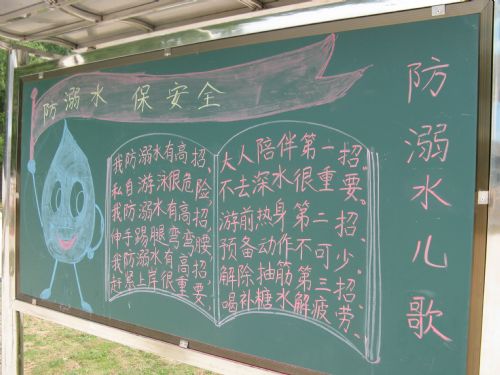 防溺水 保安全
我防溺水有高招、
私自游泳很危险、
我防溺水有高招、
伸手踢腿弯弯腰、
我防溺水有高招、
赶紧上岸很重要、
大人陪伴第一招、
不去深水很重要。
游前热身第二招、
预备动作不可少。
解除抽筋第三招、
喝补糖水解疲劳、
防溺水儿歌